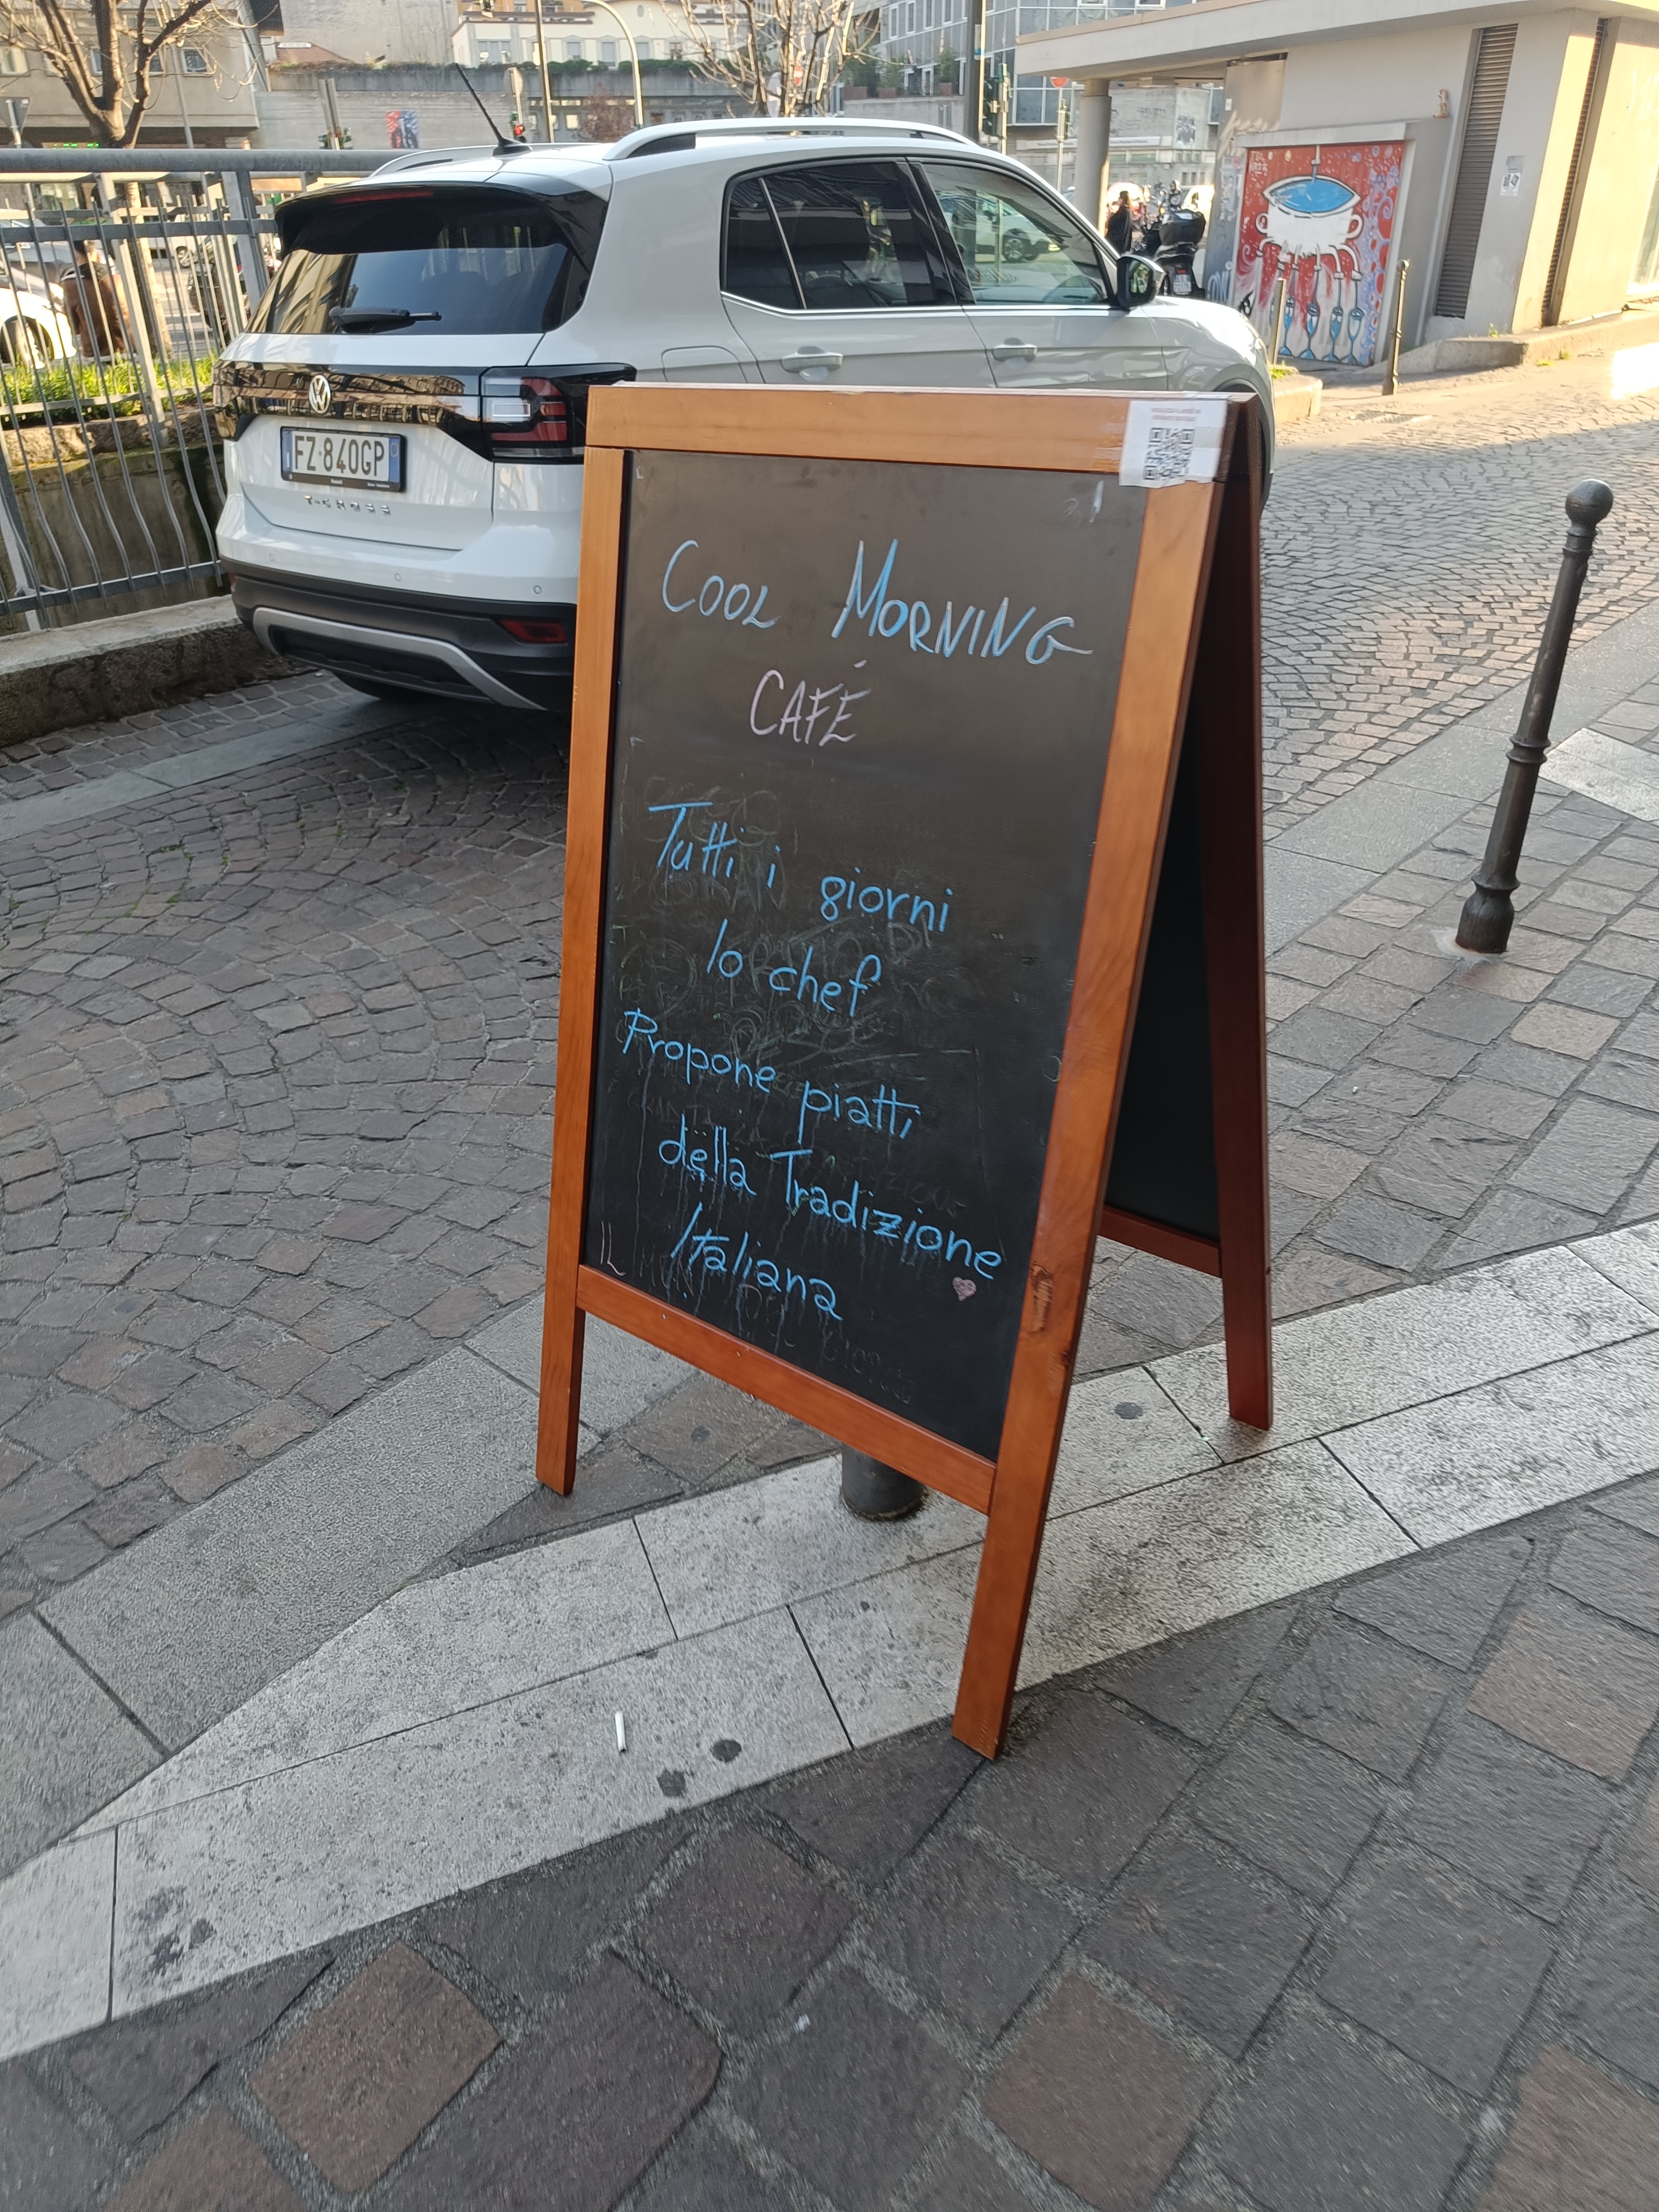 FZ 840GP
T-CROSS
COOL MORNING
CAFÉ
Tutti i giorni
lo chef
Propone piatti
della Tradizione
Italiana